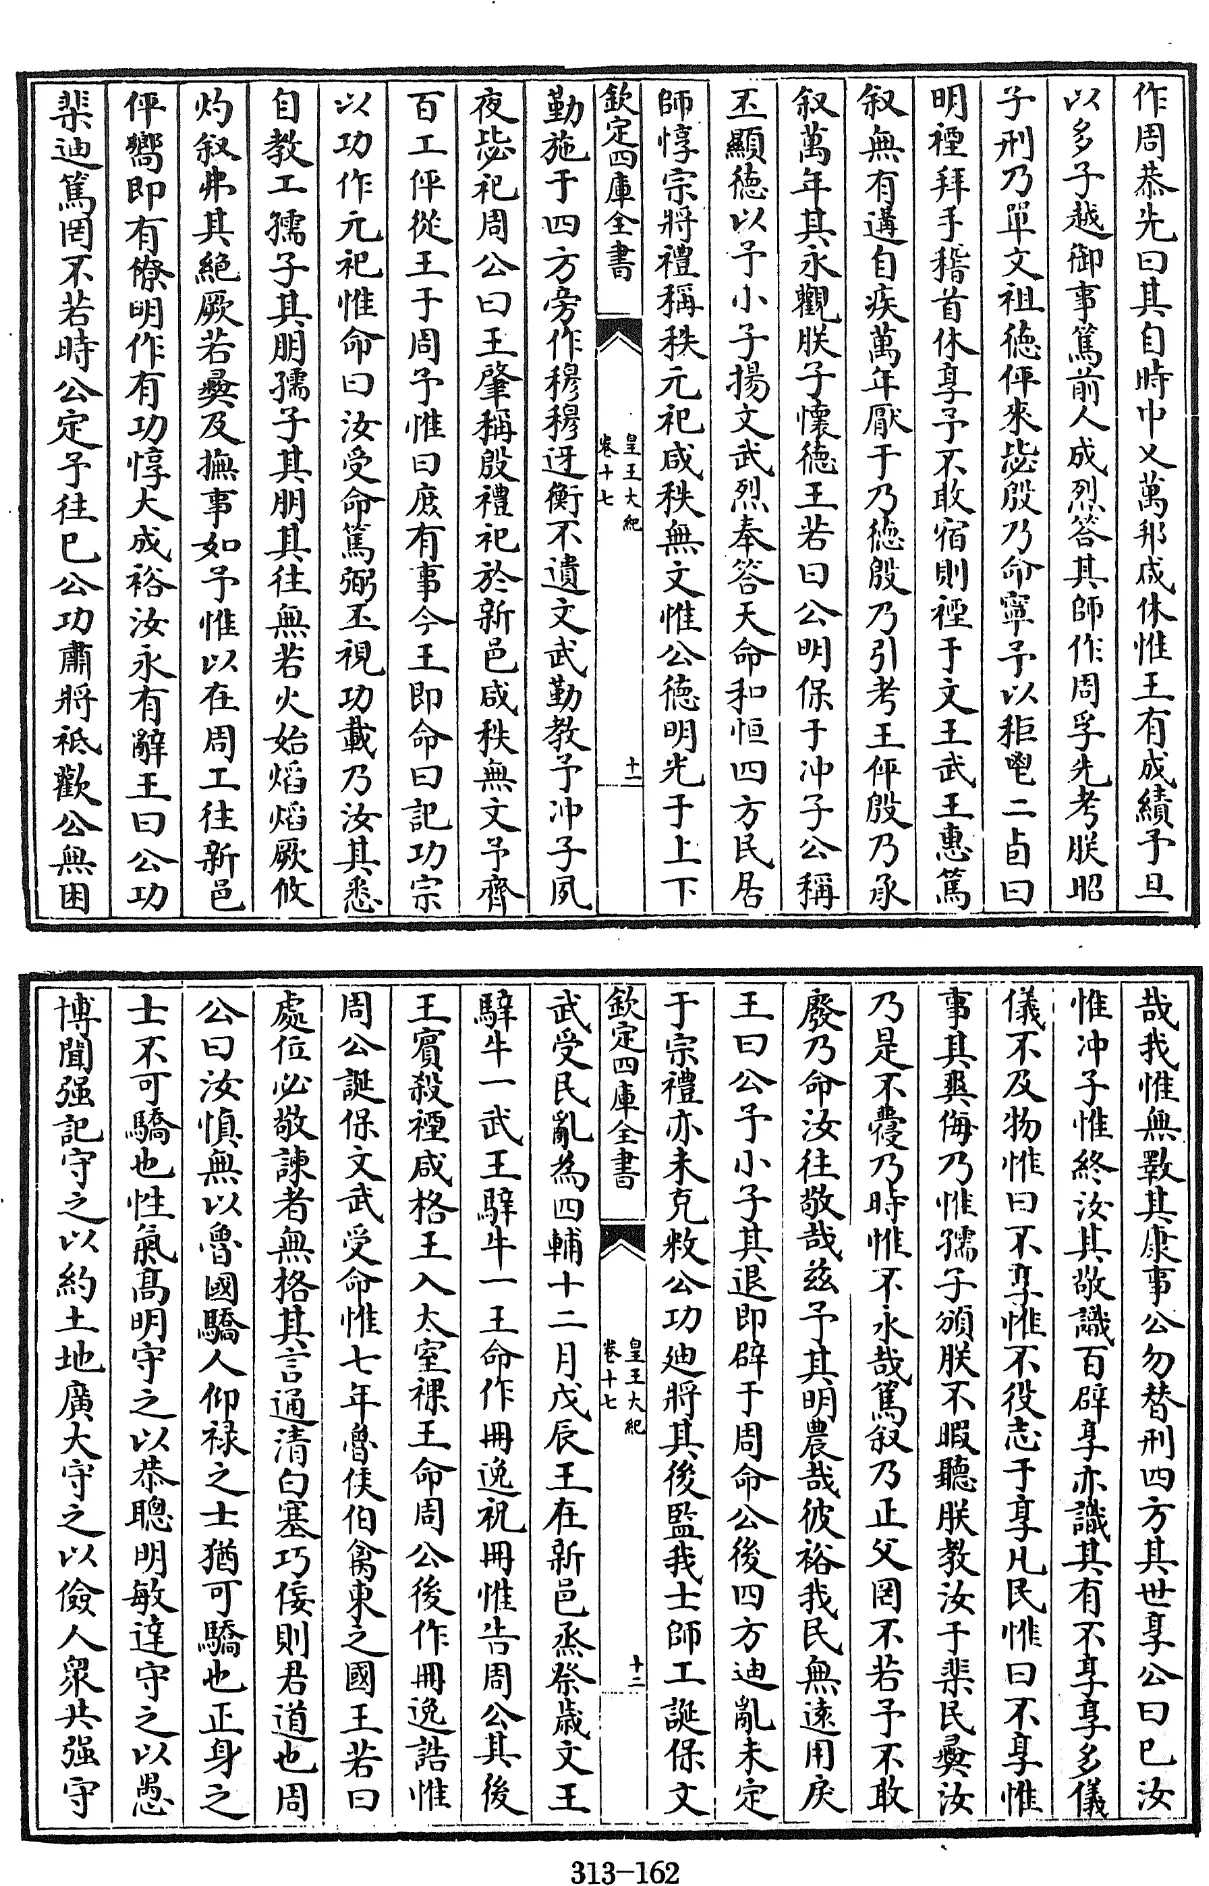 作周恭先曰其自時中乂萬邦咸休惟王有成績予旦
以多子越御事篤前人成烈答其師作周孚先考朕昭
子刑乃單文祖德伻來毖殷乃命寧予以秬鬯二卣曰
明禋拜手稽首休享予不敢宿則禋于文王武王惠篤
叙無有遘自疾萬年厭于乃德殷乃引考王伻殷乃承
叙萬年其永觀朕子懷德王若曰公明保予冲子公稱
丕顯德以予小子揚文武烈奉答天命和恒四方民居
師惇宗將禮稱秩元祀咸秩無文惟公德明光于上下
欽定四庫全書
皇王大紀
卷十七
十一
勤施于四方旁作穆穆迓衡不遺文武勤教予冲子夙
夜毖祀周公曰王肇稱殷禮祀於新邑咸秩無文予齊
百工伻從王于周予惟曰庶有事今王即命曰記功宗
以功作元祀惟命曰汝受命篤弼丕視功載乃汝其悉
自教工孺子其朋孺子其朋其往無若火始熖熖厥攸
灼叙弗其絶厥若彞及撫事如予惟以在周工往新邑
伻嚮即有僚明作有功惇大成裕汝永有辭王曰公功
棐迪篤罔不若時公定予往已公功肅將祗歡公無困
哉我惟無斁其康事公勿替刑四方其世享公曰已汝
惟冲子惟終汝其敬識百辟享亦識其有不享享多儀
儀不及物惟曰不享惟不役志于享凡民惟曰不享惟
事其爽侮乃惟孺子頒朕不暇聽朕教汝于棐民彞汝
乃是不蘉乃時惟不永哉篤叙乃正父罔不若予不敢
廢乃命汝往敬哉兹予其明農哉彼裕我民無逺用戾
王曰公予小子其退即辟于周命公後四方迪亂未定
于宗禮亦未克敉公功迪將其後監我士師工誕保文
欽定四庫全書
皇王大紀
卷十七
十二
武受民亂為四輔十二月戊辰王在新邑烝祭歲文王
騂牛一武王騂牛一王命作冊逸祝冊惟告周公其後
王賓殺禋咸格王入太室祼王命周公後作冊逸誥惟
周公誕保文武受命惟七年魯侯伯禽東之國王若曰
處位必敬諫者無格其言通清白塞巧佞則君道也周
公曰汝慎無以魯國驕人仰禄之士猶可驕也正身之
士不可驕也性氣高明守之以恭聰明敏達守之以愚
博聞强記守之以約土地廣大守之以儉人衆共强守
313-162